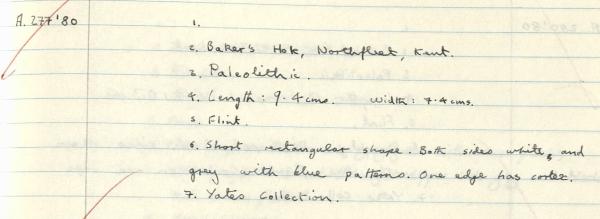 A.277'80
1.
2. Baker's Hole, Northfleet, Kent.
3. Paleolithic.
4. Length: 9.4cms. Width: 7.4cms.
5. Flint.
6. Short rectangular shape. Both sides white, and
grey with blue patterns. One edge has cortex.
7. Yates Collection.